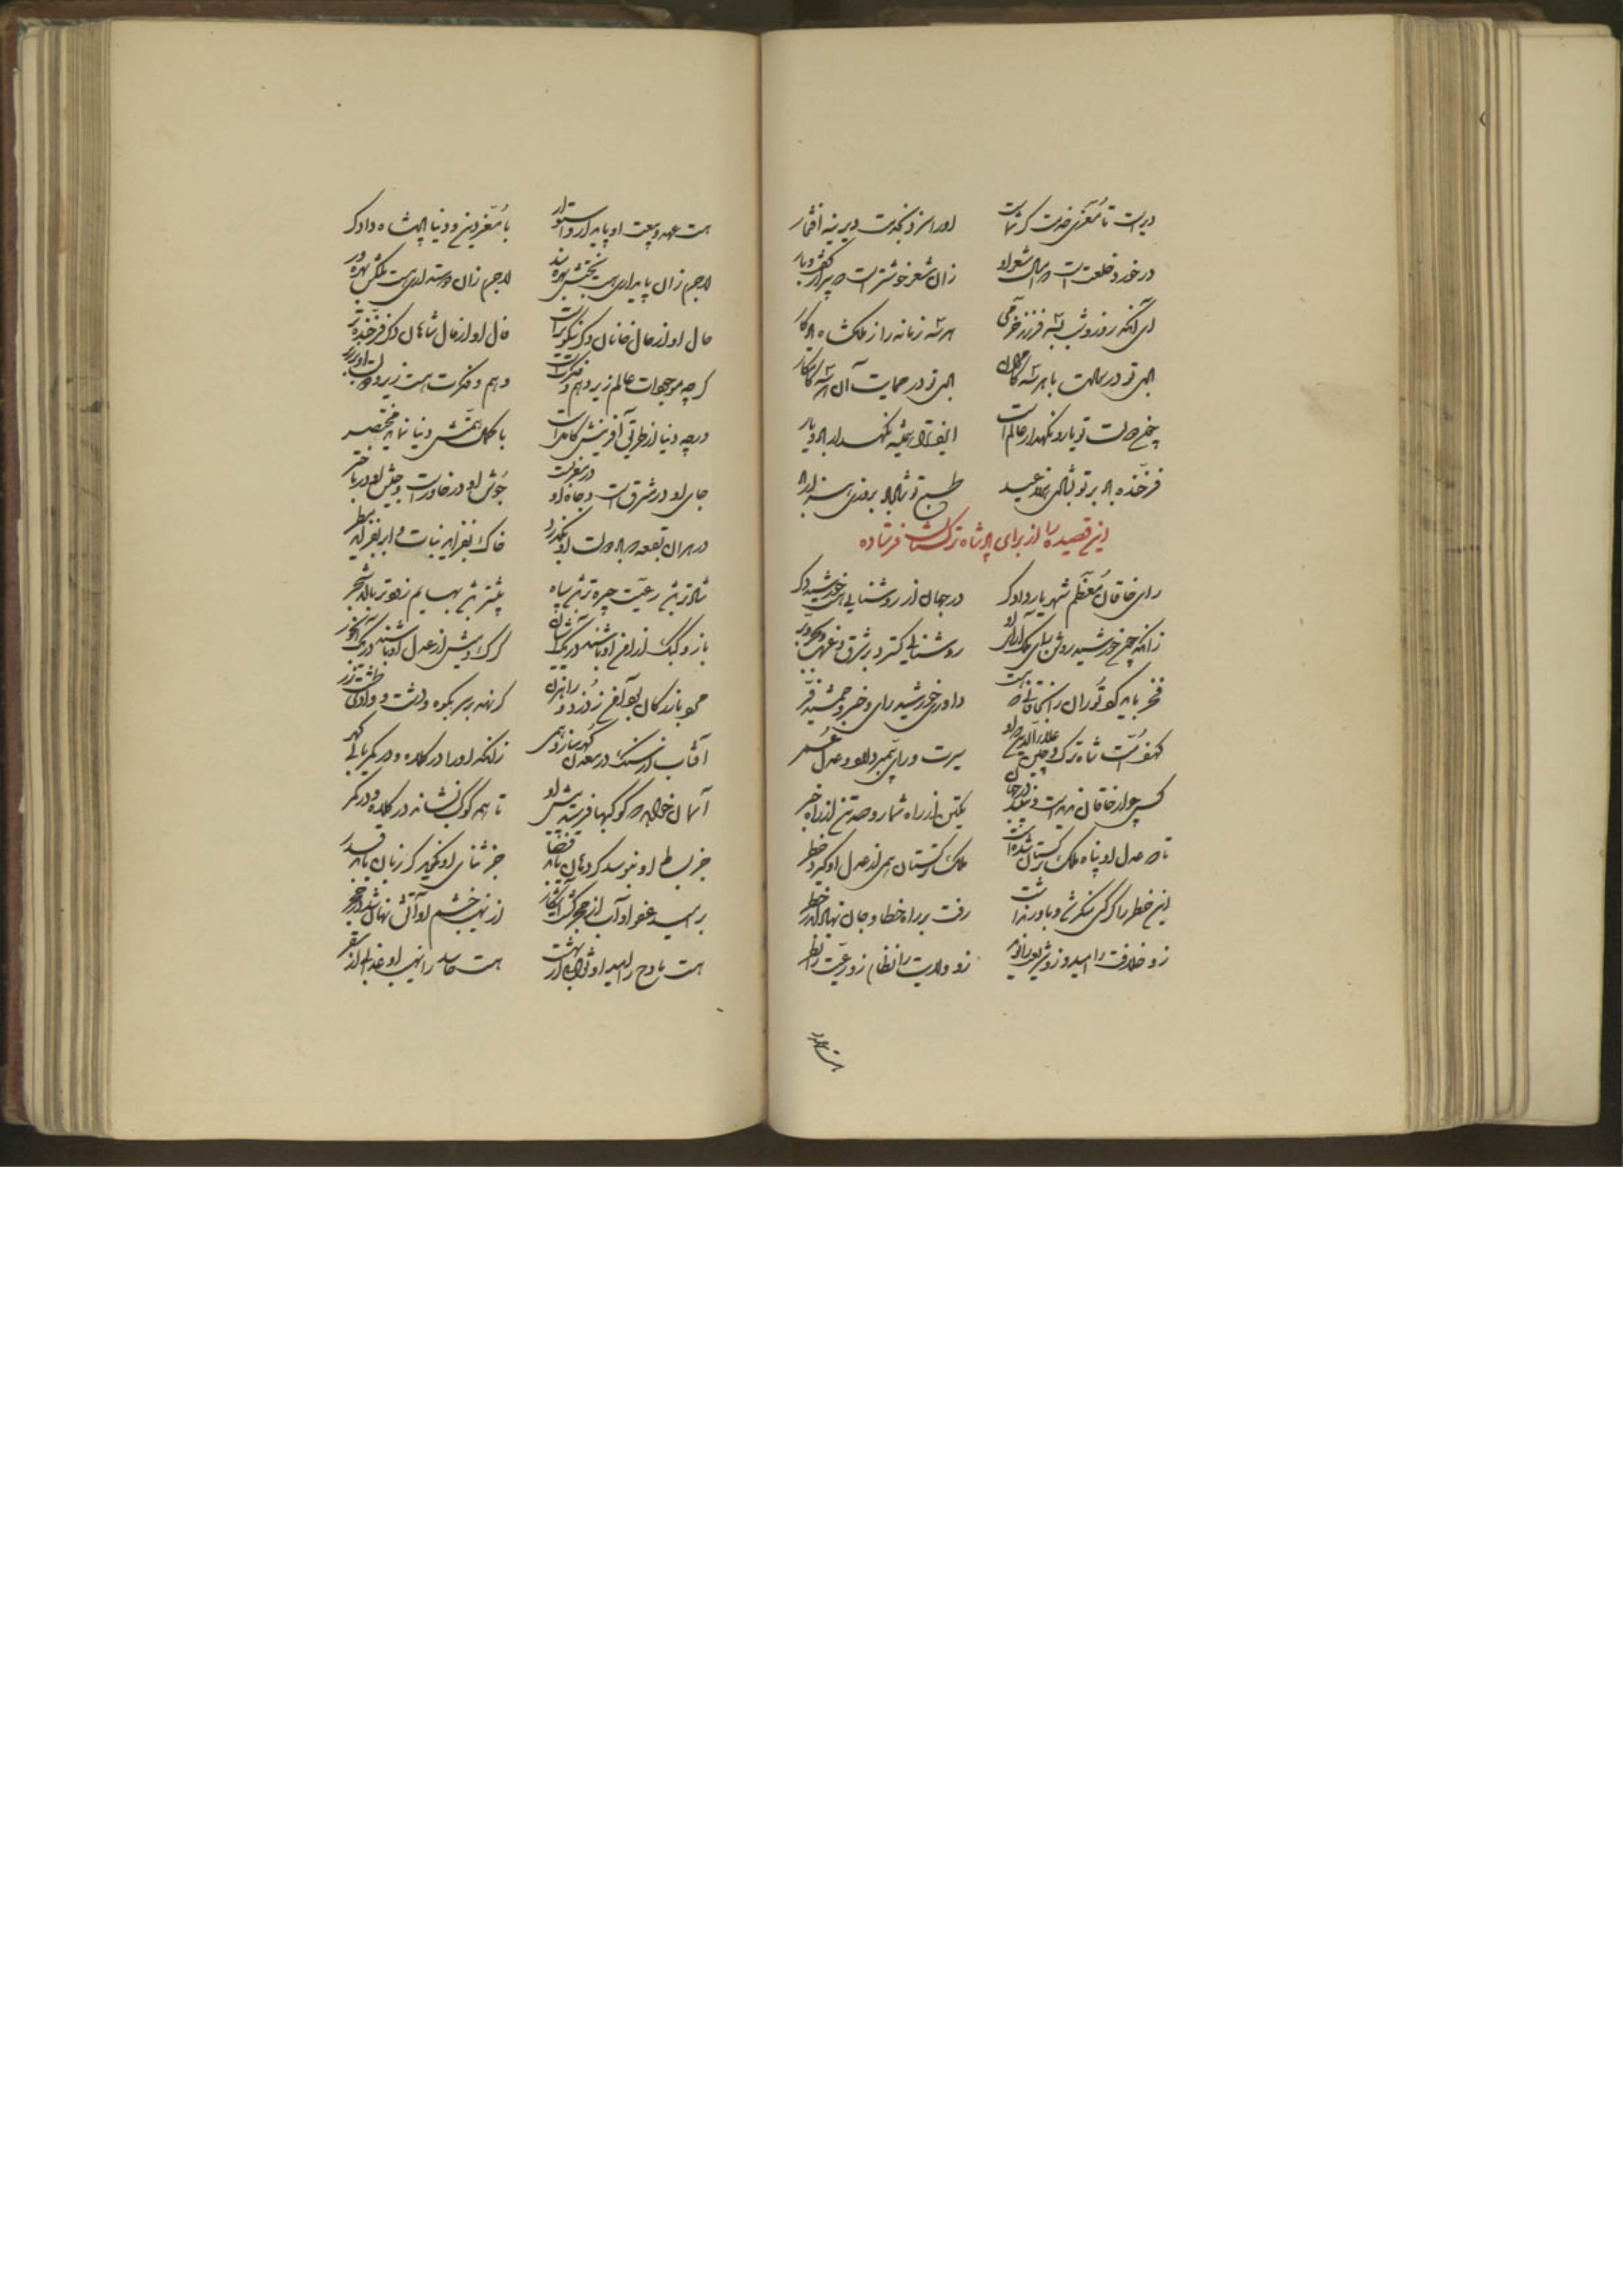 دیرست تا معزی خدمت گر شماست اورا سزد بخدمت دیرینه افتخار
در خورد خلعت است شعر او زان شعر خوشترست
ای آنکه روز و شب فرزند خرمی هر شه زمانه را ز ملکشاه یادگار
تو در رسالت با هر شه تو در حمایت آن شه
چرخ دولت تو یار و نگهدار عالم است ایزد ترا همیشه نگهدار باد و یار
فرخنده باد بر تو عید طبع تو شاد باد
این قصیده را از برای پادشاه ترکستان فرستاده
رای خاقان معظم شهریار دادگر در جهان از روشنایی هست خورشید دگر
زانکه چون خورشید روشن رای ملک آرای او روشنایی گسترد در شرق و غرب و بحر و بر
فخر باید کرد توران را بخاقانی که هست داور خورشید رای و خسرو جمشید فر
کهف امت شاه ترک و چین علاءالدین که او سیرت و رای پیمبر دارد و عدل عمر
کس چو او خاقان نبودست و نباشد در جهان یکتن از راه شمار و صد تن از راه خبر
تا که عدل او پناه ملک ترکستان شدست ملک ترکستان همی از عدل او گیرد خطر
این خطر را گر کسی منکر شد و باور نداشت رفت بر راه خطا و جان نهاد اندر خطر
زو خلافت را امید و زو شریعت را نوید زو ولایت را نظام و زو رعیت را نظر
هست عهد و بیعت او پایدار و استوار با معز دین و دنیا پادشاه دادگر
لاجرم زان پایداری هست بختش بهره‌مند لاجرم زان استواری هست ملکش بهره‌ور
حال او از حال خانان دگر نیکوتر است فال او از فال شاهان دگر فرخنده‌تر
گرچه موجودات عالم زیر وهم و فکرت است وهم و فکرت هست زیر و دولت او بر زبر
ورچه دنیا از طریق آفرینش کامل است با کمال همتش دنیا نماید مختصر
جای او در مشرق است و جاه او در مغرب است جوش او در خاورست و جیش او در باختر
در هر آن بقعه که باد دولت او بگذرد خاک بفزاید نبات و ابر بفزاید مطر
شادتر باشد رعیت چیره‌تر باشد سپاه بیشتر باشد بهایم زودتر بالد شجر
باز و کبک از امن او باشند در یک آشیان گرگ و میش از عدل او باشند در یک آبخور
همچو بازرگان بود آمن ز دزد و راهزن گر نهد بر سر بکوه و دشت و وادی طشت زر
آفتاب از سنگ در معدن گهر سازد همی زانکه او را در کلاه و در کمر باید گهر
آسمان خواهد که کوکبها فرستد پیش او تا همه کوکب نشاند در کلاه و در کمر
جز بساط او نبوسد گر دهان یابد قضا جز ثنای او نگوید گر زبان یابد قدر
بر امید عفو او آب از حجر گشت آشکار از نهیب خشم او آتش نهان شد در حجر
هست مادح را امید او ثواب اندر بهشت هست حاسد را نهیب او عذاب اندر سقر